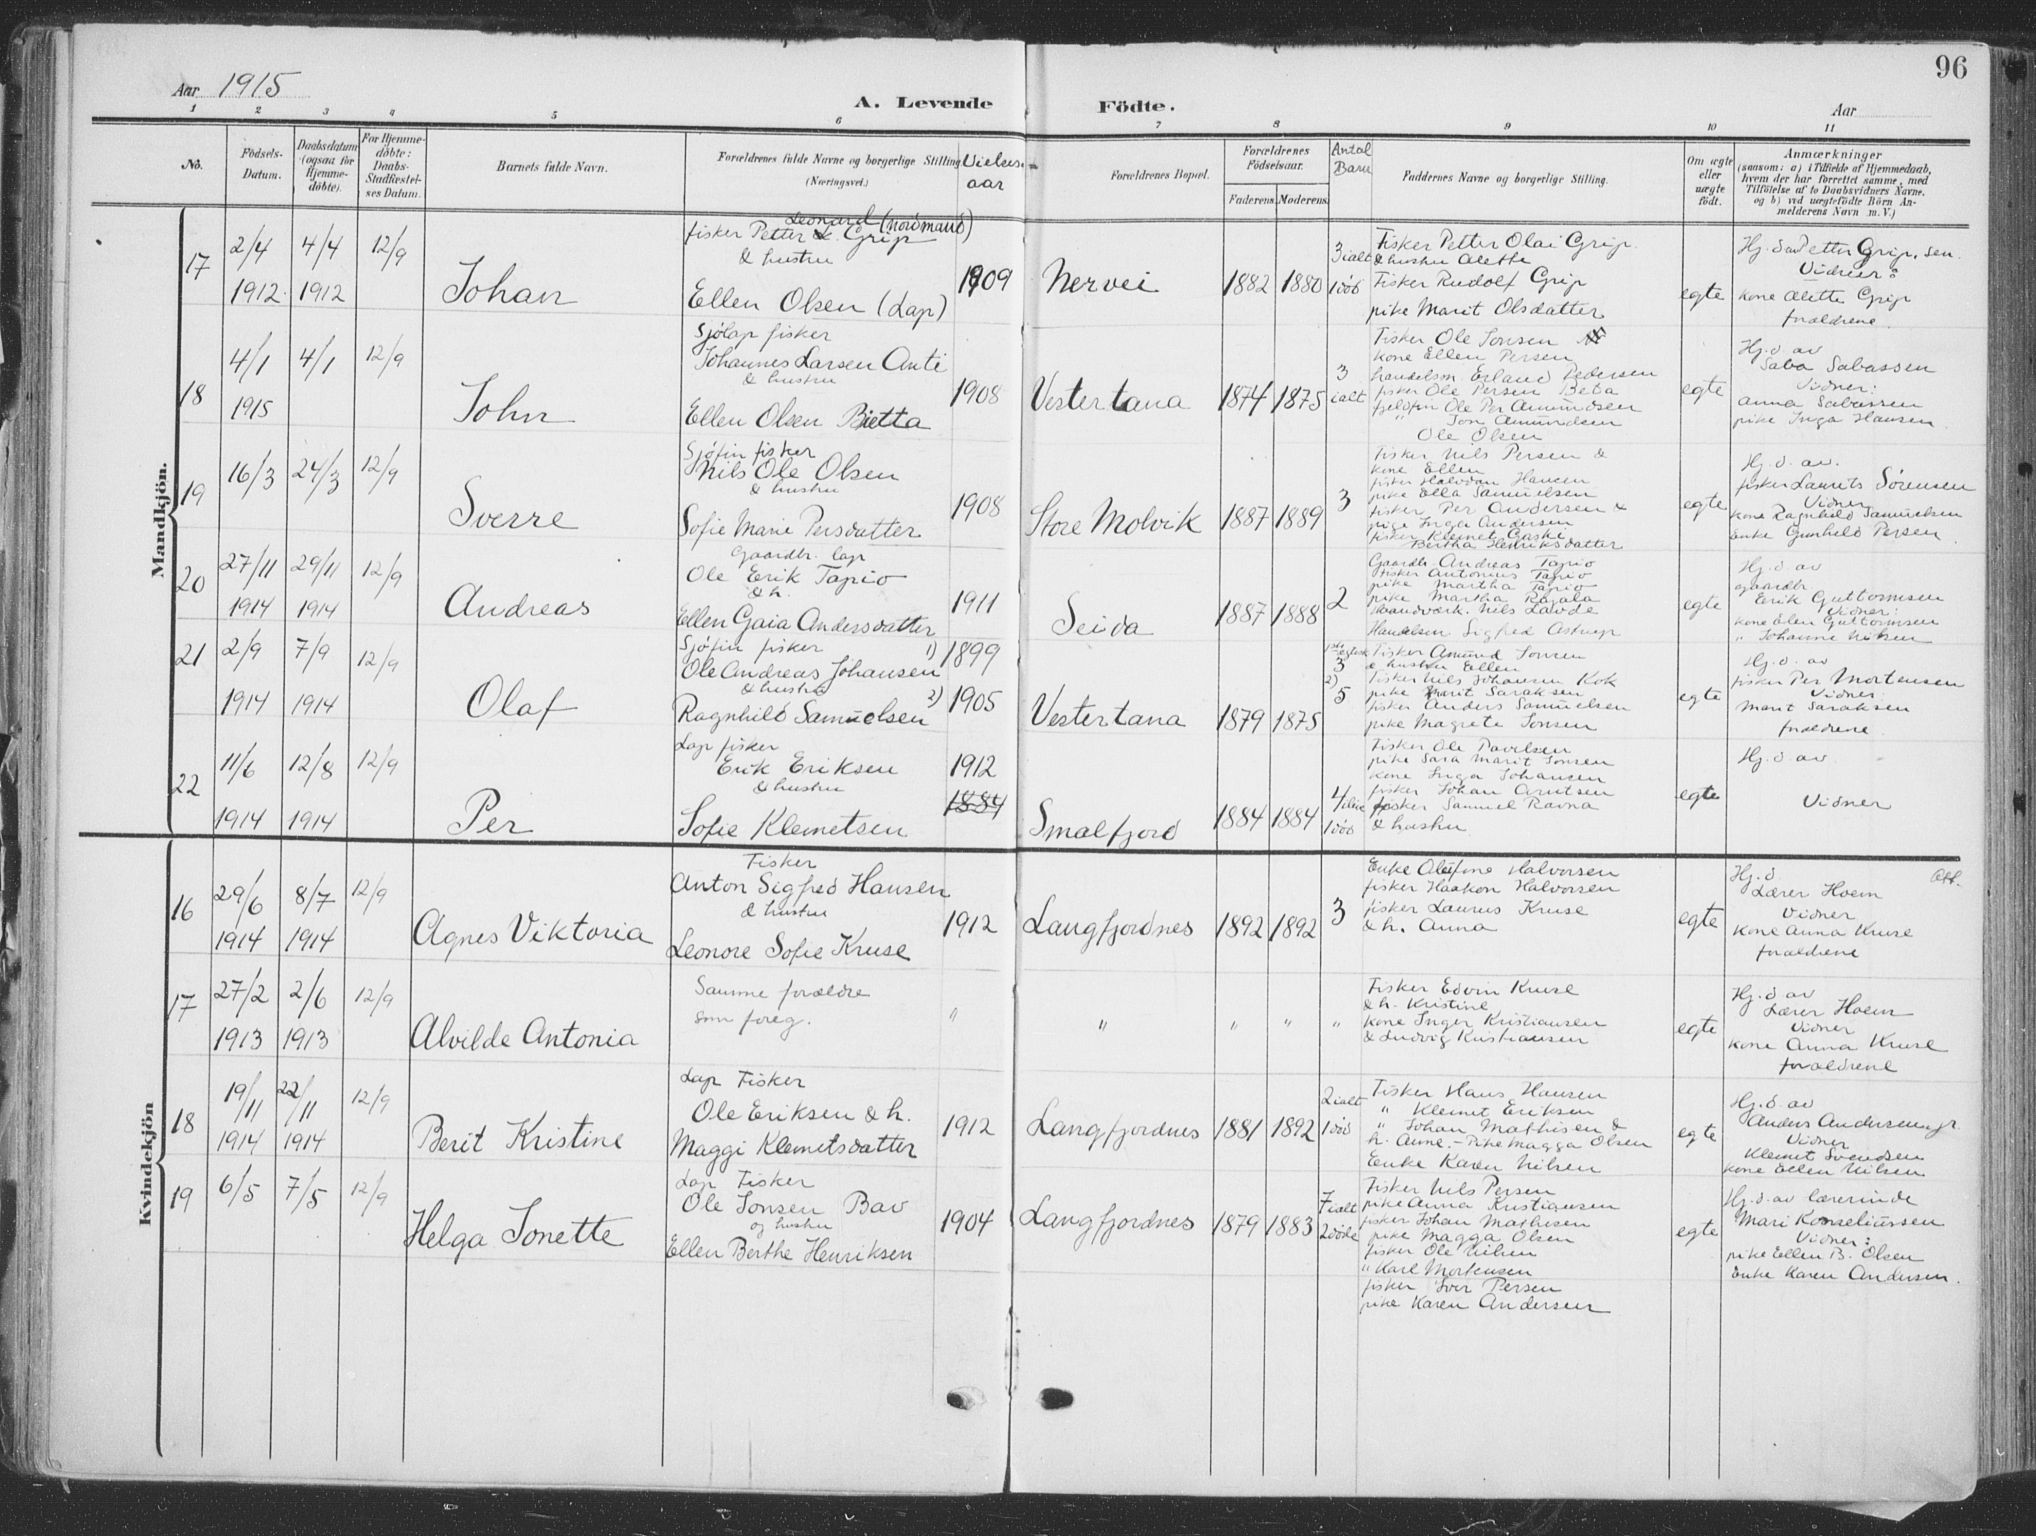 96
Aar 1915
A. Levende Födte.
Aar
1 2 3 4 5 6 7 8 9 10 11
No.
Födsels-Datum.
Daabsdatum (ogsaa for Hjemmedöbte).
For Hjemmedöbte: Daabs-Stadfæstelses Datum.
Barnets fulde Navn.
Forældrenes fulde Navne og borgerlige Stilling (Næringsvei.)
Vielsesaar
Forældrenes Bopæl.
Forældrenes Födselsaar.
Faderens. Moderens.
Antal Barn
Faddernes Navne og borgerlige Stilling.
Om ægte eller uægte födt.
Anmærkninger
(saasom: a) i Tilfælde af Hjemmedaab,
hvem der har forrettet samme, med
Tilföielse af to Daabsvidners Navne,
og b) ved uægtefödte Börn An-
melderens Navn m. V.)
Mandkjön.
17
2/4 1912
4/4 1912
12/9
Johan
Leonard (nordmand)
fisker Petter L. Grip
& hustru
Ellen Olsen (Lap)
1909
Nervei
1882 1880
3 ialt
1 död
Fisker Petter Olai Grip
& hustru Alette
Fisker Rudolf Grip
pike Marit Olsdatter
egte
Hj. d. av Petter Grip, sen.
Vidner:
kone Alette Grip
forældrene
18
4/1 1915
4/1
12/9
John
Sjölap fisker
Johannes Larsen Anti
& hustru
Ellen Olsen Bietta
1908
Vestertana
1874 1875
3 ialt
Fisker Ole Jonsen
kone Ellen Persen
handelsm Erland Pedersen
fisker Ole Persen Beba
fjeldfin Ole Per Amundsen
" Jon Amundsen
Ole Olsen
egte
Hj. d. av
Saba Sabassen
Vidner:
Anna Sabassen
pike Inga Hansen
19
16/3
24/3
12/9
Sverre
Sjöfin fisker
Nils Ole Olsen
& hustru
Sofie Marie Persdatter
1908
Store Molvik
1887 1889
3
Fisker Nils Persen &
kone Ellen
fisker Halvdan Hansen
pike Ella Samuelsen
fisker Per Andersen &
pige Inga Andersen
fisker Klemet Gaske
Bertha Henriksdatter
egte
Hj. d. av.
fisker Laurits Sörensen
Vidner
kone Ragnhild Samuelsen
Enke Gunhild Persen
20
27/11 1914
29/11 1914
12/9
Andreas
Gaardbr. lap
Ole Erik Tapio
& h.
Ellen Gaia Andersdatter
1911
Seida
1887 1888
2
Gaardbr. Andreas Tapio
fisker Antonius Tapio
pike Martha Tapio
pike Martha Rajala
Haandværk. Nils Lavde
Handelsm Sigfred Astrup
egte
Hj. d. av
gaardbr
Erik Guttormsen
Vidner:
kone Elen Guttormsen
" Johanne Nilsen
21
2/9 1914
7/9 1914
12/9
Olaf
Sjöfin fisker
Ole Andreas Johansen
& hustru
Ragnhild Samuelsen
1) 1899
2) 1905
Vestertana
1879 1875
3
2)
5
Fisker Amund Jonsen
& hustru Ellen
Fisker Nils Johansen Kok
pike Marit Saraksen
fisker Anders Samuelsen
pike Magrete Jonsen
egte
Hj. d. av
fisker Per Mortensen
Vidner:
Marit Saraksen
forældrene
22
11/6 1914
12/8 1914
12/9
Per
Lap fisker
Erik Eriksen
& hustru
Sofie Klemetsen
1912
1884
Smalfjord
1884 1884
4
1 död
Fisker Ole Pavelsen
pike Sara Marit Jonsen
kone Inga Johansen
fisker Johan Arntsen
fisker Samuel Ravna
& hustru
egte
Hj. d. av.
Vidner
Kvindekjön
16
29/6 1914
8/7 1914
12/9
Agnes Viktoria
Fisker
Anton Sigfred Hansen
& hustru
Leonore Sofie Kruse
1912
Langfjordnes
1892 1892
3
Enke Olefine Halvorsen
fisker Haakon Halvorsen
fisker Laurus Kruse
& h. Anna
egte
Hj. d
Lærer Hoem
Vidner
kone Anna Kruse
forældrene
Att.
17
27/2 1913
2/6 1913
12/9
Alvilde Antonia
Samme forældre
som foreg.
" " " " "
Fisker Edvin Kruse
& h. Kristine
kone Inger Kristiansen
& Ludvig Kristiansen
egte
Hj. d av
Lærer Hoem
Vidner
kone Anna Kruse
forældrene
18
19/11 1914
22/11 1914
12/9
Berit Kristine
Lap Fisker
Ole Eriksen & h.
Maggi Klemetsdatter
1912
Langfjordnes
1881 1892
2 ialt
1 död
Fisker Hans Hansen
" Klemet Eriksen
" Johan Mathisen &
h. Anne. - Pike Magga Olsen
Enke Karen Nilsen
egte
Hj. d. av
Anders Andersen jr.
Vidner
Klemet Svendsen
kone Ellen Nilsen
19
6/5
7/5
12/9
Helga Jonette
Lap Fisker
Ole Jonsen Bav
og hustru
Ellen Berthe Henriksen
1904
Langfjordnes
1879 1883
7 ialt
2 döde
Fisker Nils Persen
pike Anna Kristiansen
fisker Johan Mathisen
pike Magga Olsen
fisker Ole Nilsen
" Karl Mortensen
fisker Iver Persen
pike Karen Andersen
egte
Hj. d. av lærerinde
Mari Korneliussen
Vidner:
pike Ellen B. Olsen
Enke Karen Andersen.